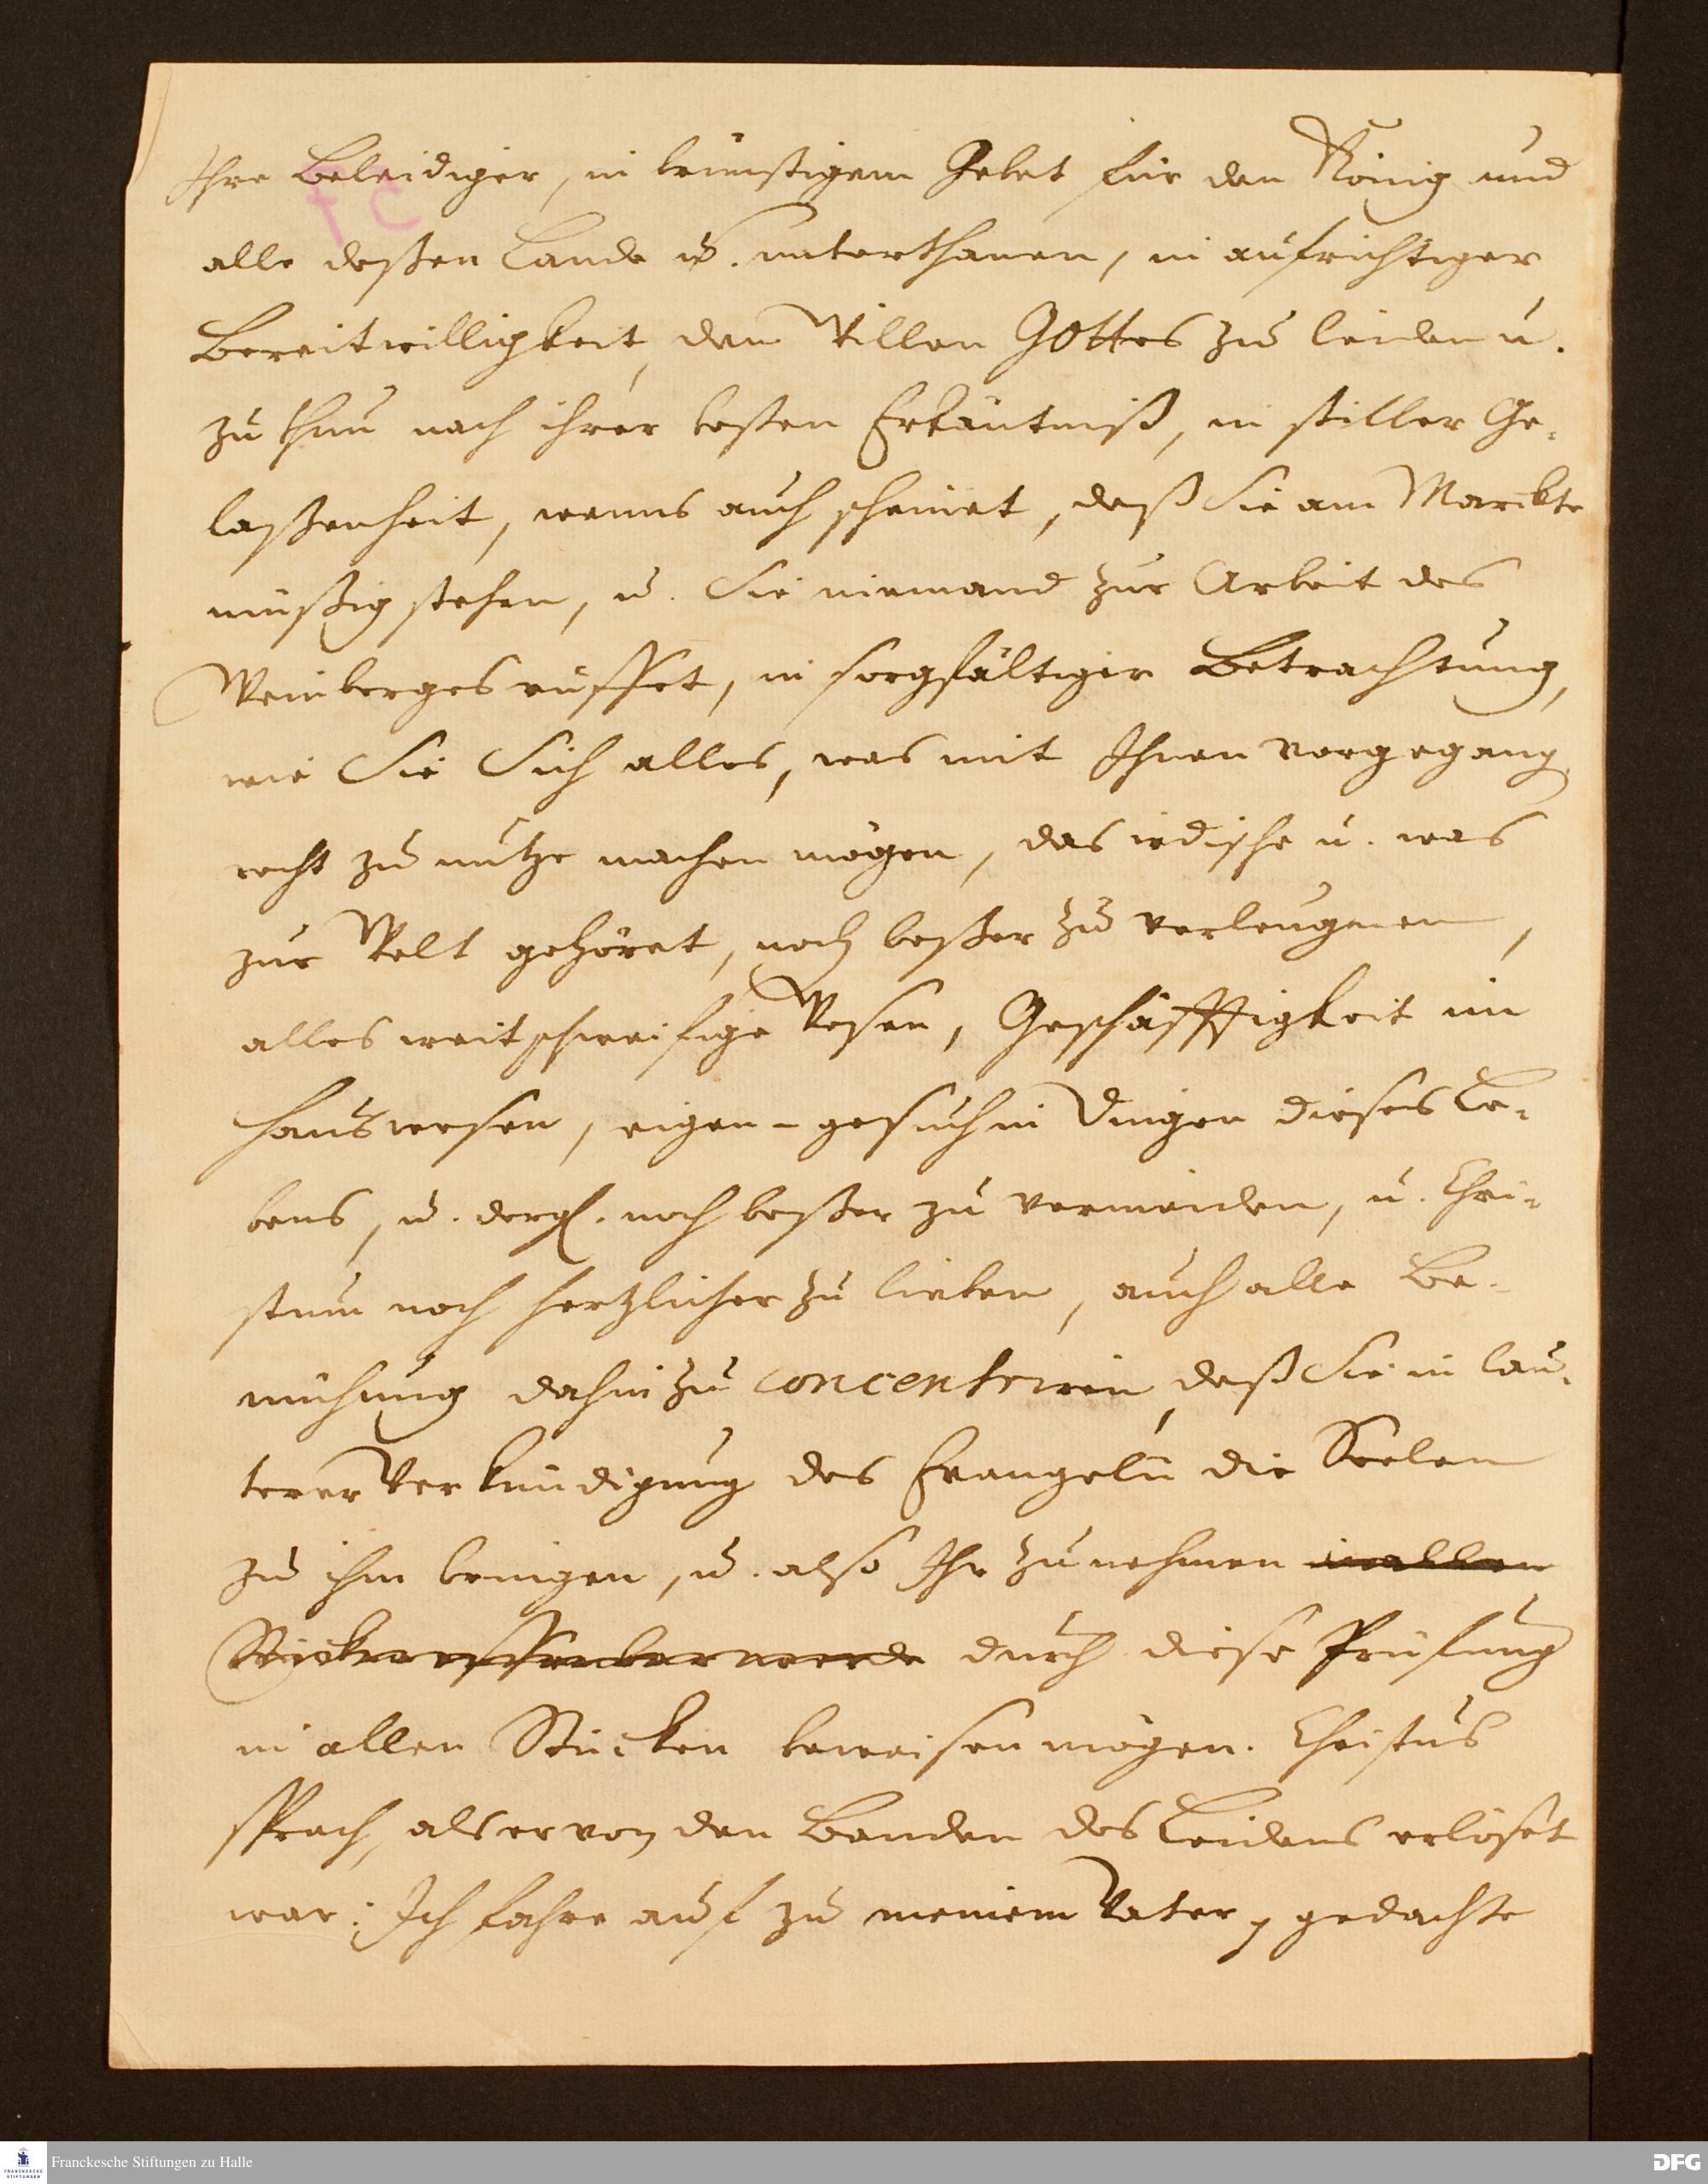 Ihre Beleidiger, in brünstigem Gebet für den König und
alle deßen Lande u. unterthanen, in aufrichtiger
Bereitwilligkeit, den Willen GOttes zu leiden u.
zu thun nach ihrer besten Erkäntniß, in stiller Ge-
laßenheit, wenns auch scheinet, daß Sie am Marckte
müßig stehen, u. Sie niemand zur Arbeit des
Weinberges ruffet, in sorgfältiger Betrachtung,
wie Sie Sich alles, was mit Ihnen vorgegang
recht zu nutze machen mögen, das irdische u. was
zur Welt gehöret, noch beßer zu verleugnen,
alles weitschweifige Wesen, Geschäfftigkeit im
Hauswesen, eigen-gesuch in Dingen dieses Le-
bens, u. dergl. noch beßer zu vermeiden, u. Chri-
stum noch hertzlicher zu lieben, auch alle Be-
mühung dahin zu concentriren, daß Sie in lau-
terer Verkündigung des Evangelii die Seelen
zu ihm bringen, u. also Ihr zunehmen in allen
Stücken offenbar werde durch diese Prüfung
in allen Stücken beweisen mögen. Christus
sprach, als er von den Banden des Leidens erlöset
war: Ich fahre auf zu meinem Vater, gedachte
Franckesche Stiftungen zu Halle
FRANCKESCHE STIFTUNGEN
DFG